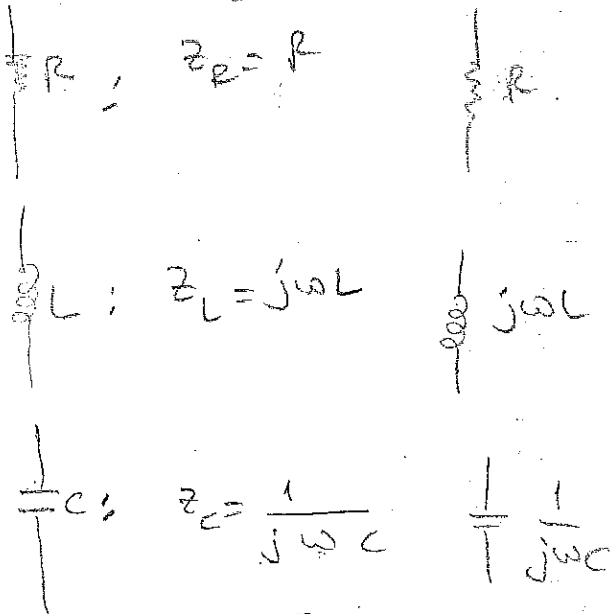 R : Z_R = R R
L : Z_L = jωL jωL
C : Z_C = 1/(jωC) 1/(jωC)